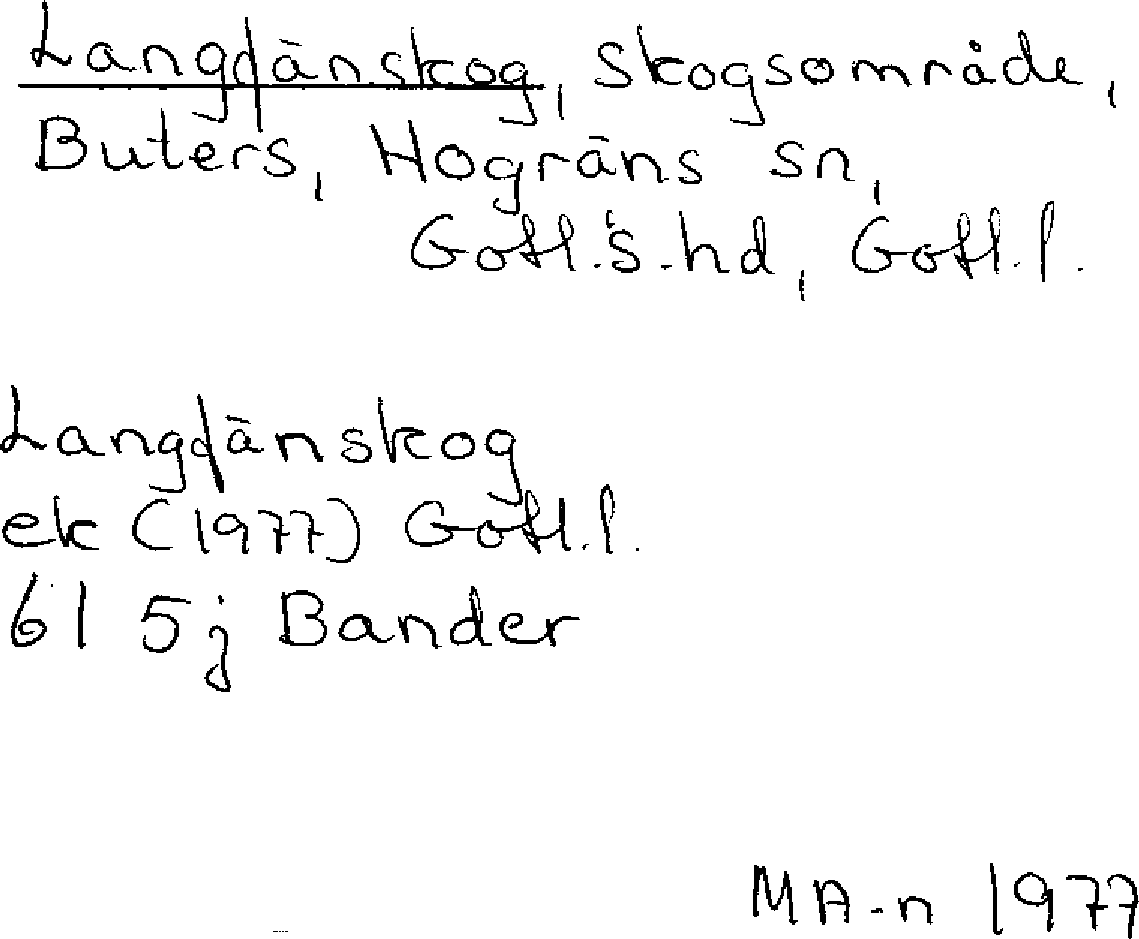 Langdänskog, skogsområde,
Buters, Hogräns sn,
Gotl.s.hd, Gotl.l.
Langdänskog
ek (1977) Gotl.l.
6I 5j Bander
MA-n 1977